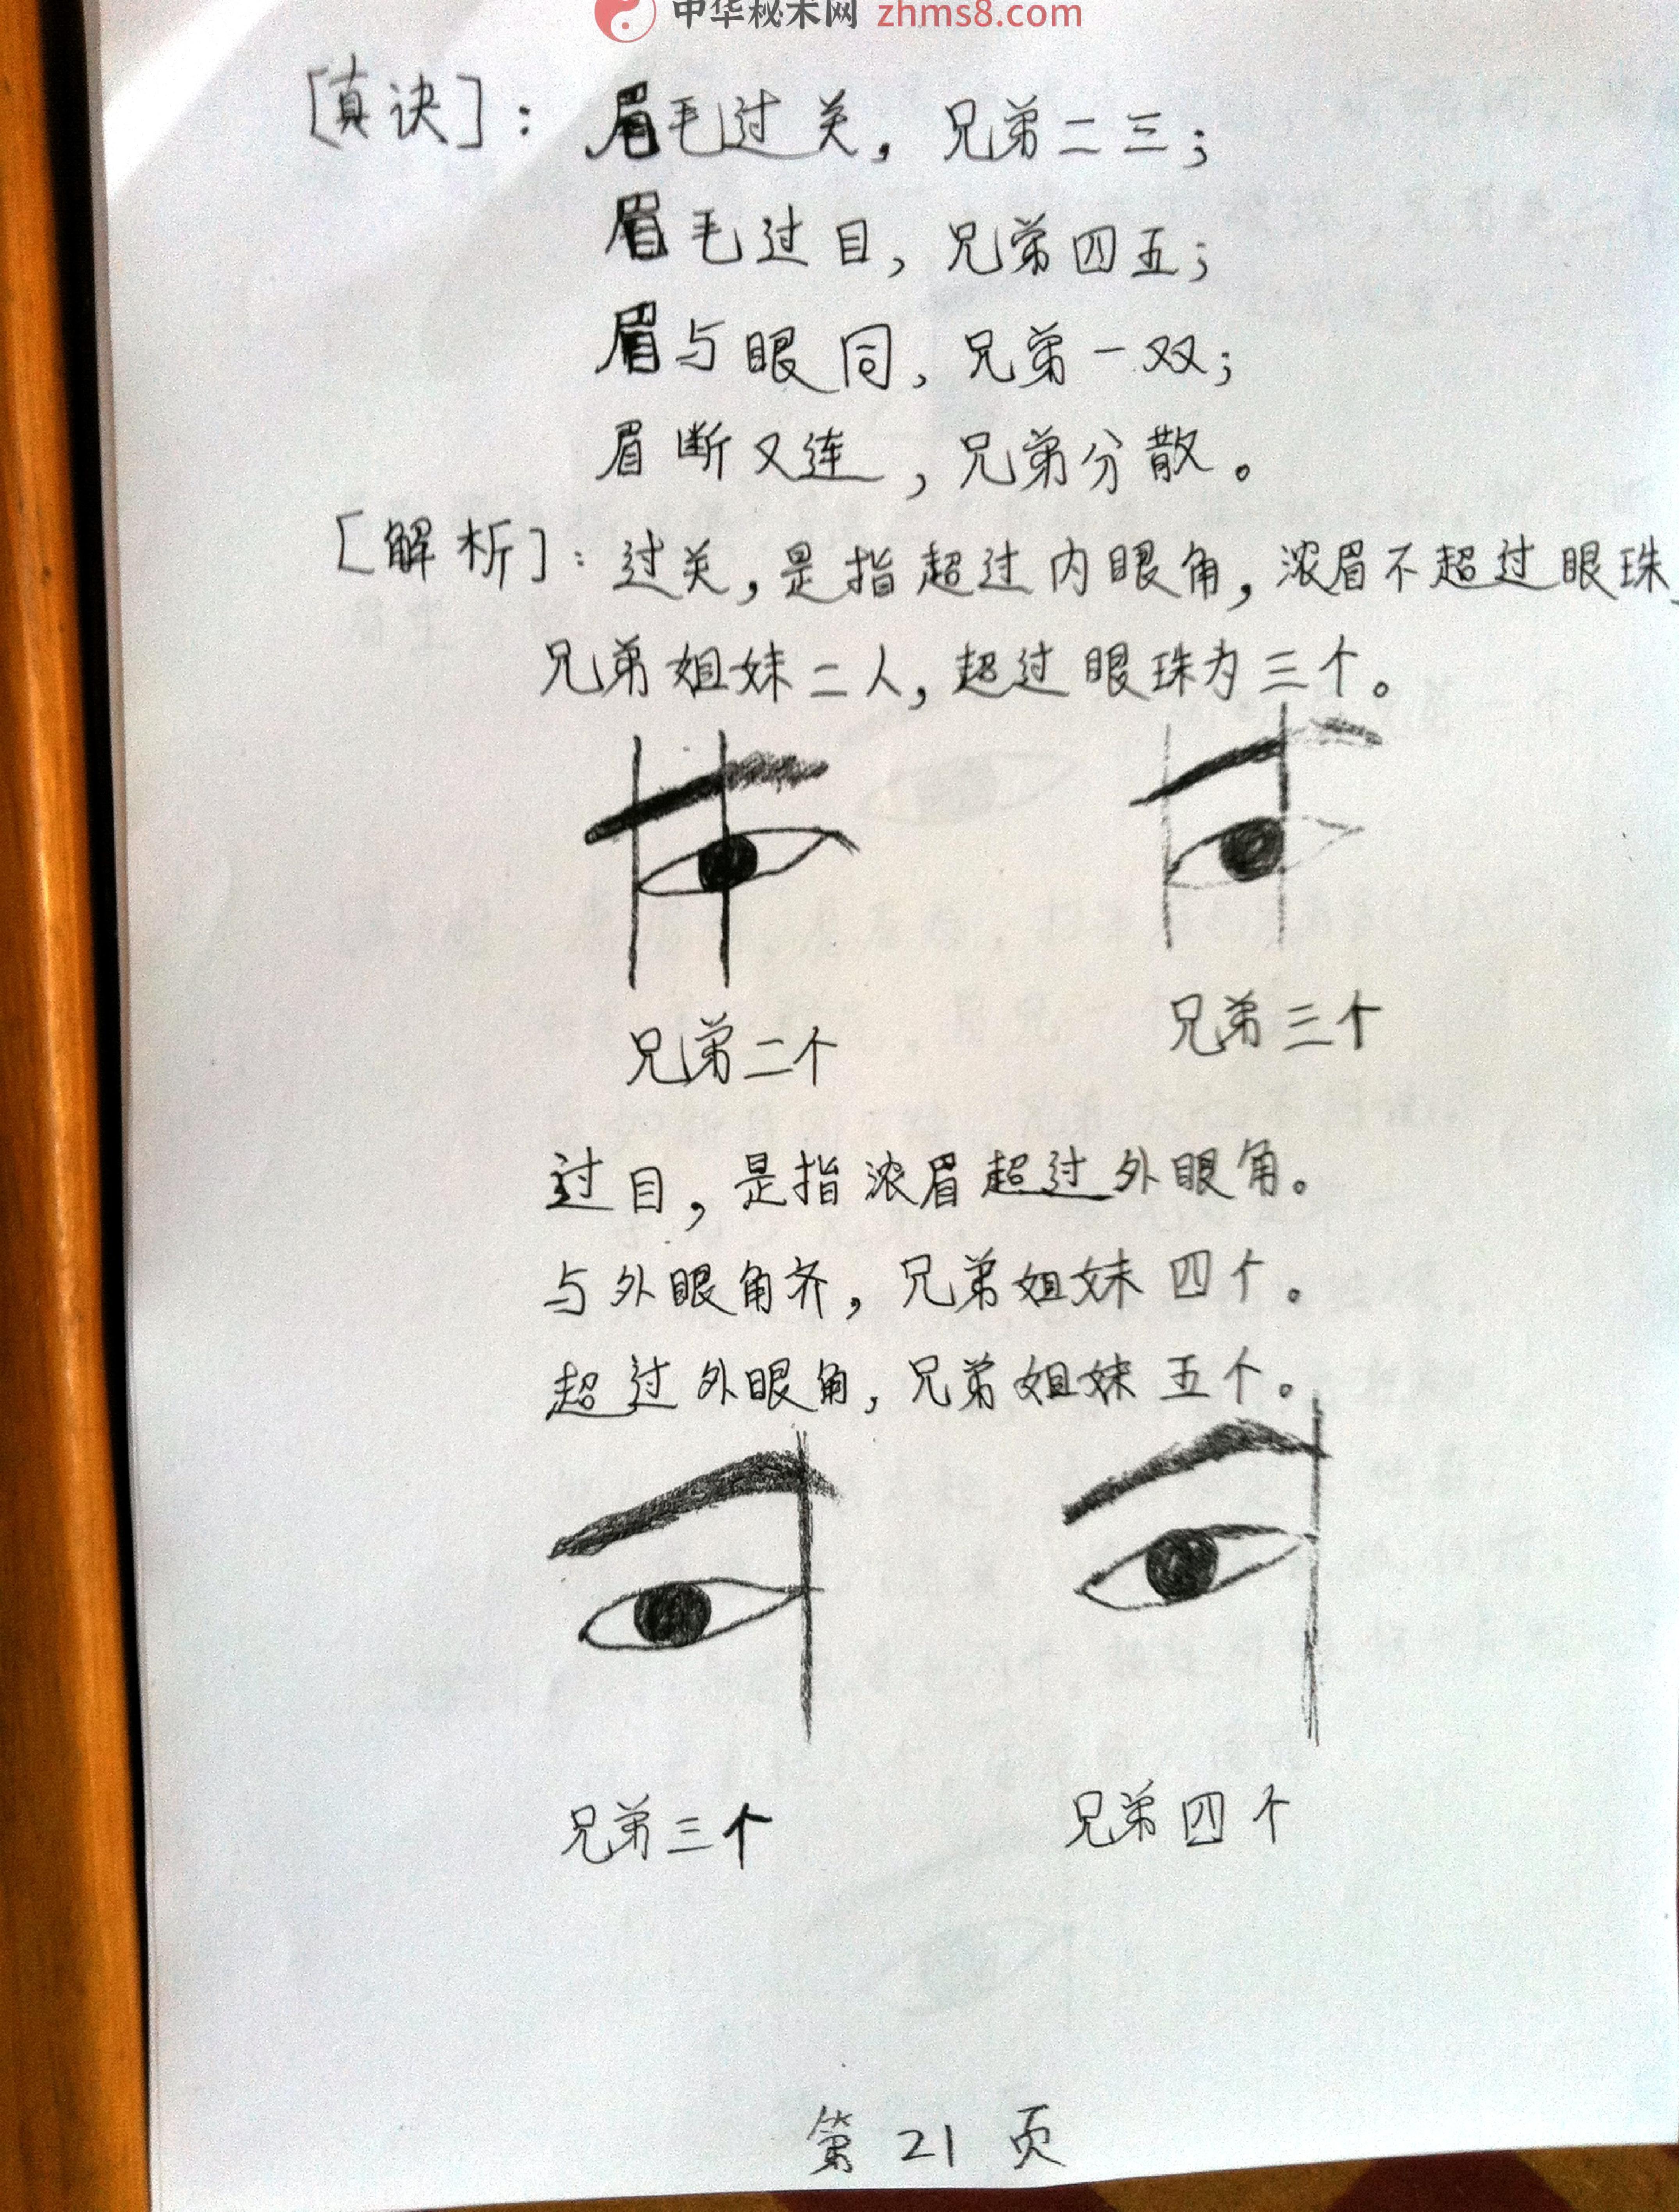 中华秘术网 zhms8.com
[真诀]：眉毛过关，兄弟二三；
眉毛过目，兄弟四五；
眉与眼同、兄弟一双；
眉断又连，兄弟分散。
[解析]：过关，是指超过内眼角，浓眉不超过眼珠、
兄弟姐妹二人，超过眼珠为三个。
兄弟二个
兄弟三个
过目，是指浓眉超过外眼角。
与外眼角齐，兄弟姐妹四个。
超过外眼角，兄弟姐妹五个。
兄弟三个
兄弟四个
第21页